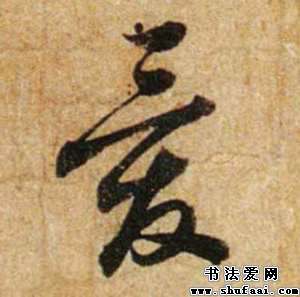 爱
书法爱网
www.shufaai.com